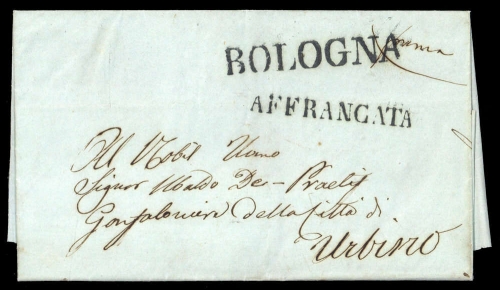 BOLOGNA
AFFRANCATA
Al Nobil Uomo
Signor Ubaldo De-Praetis
Gonfaloniere della Città di
Urbino